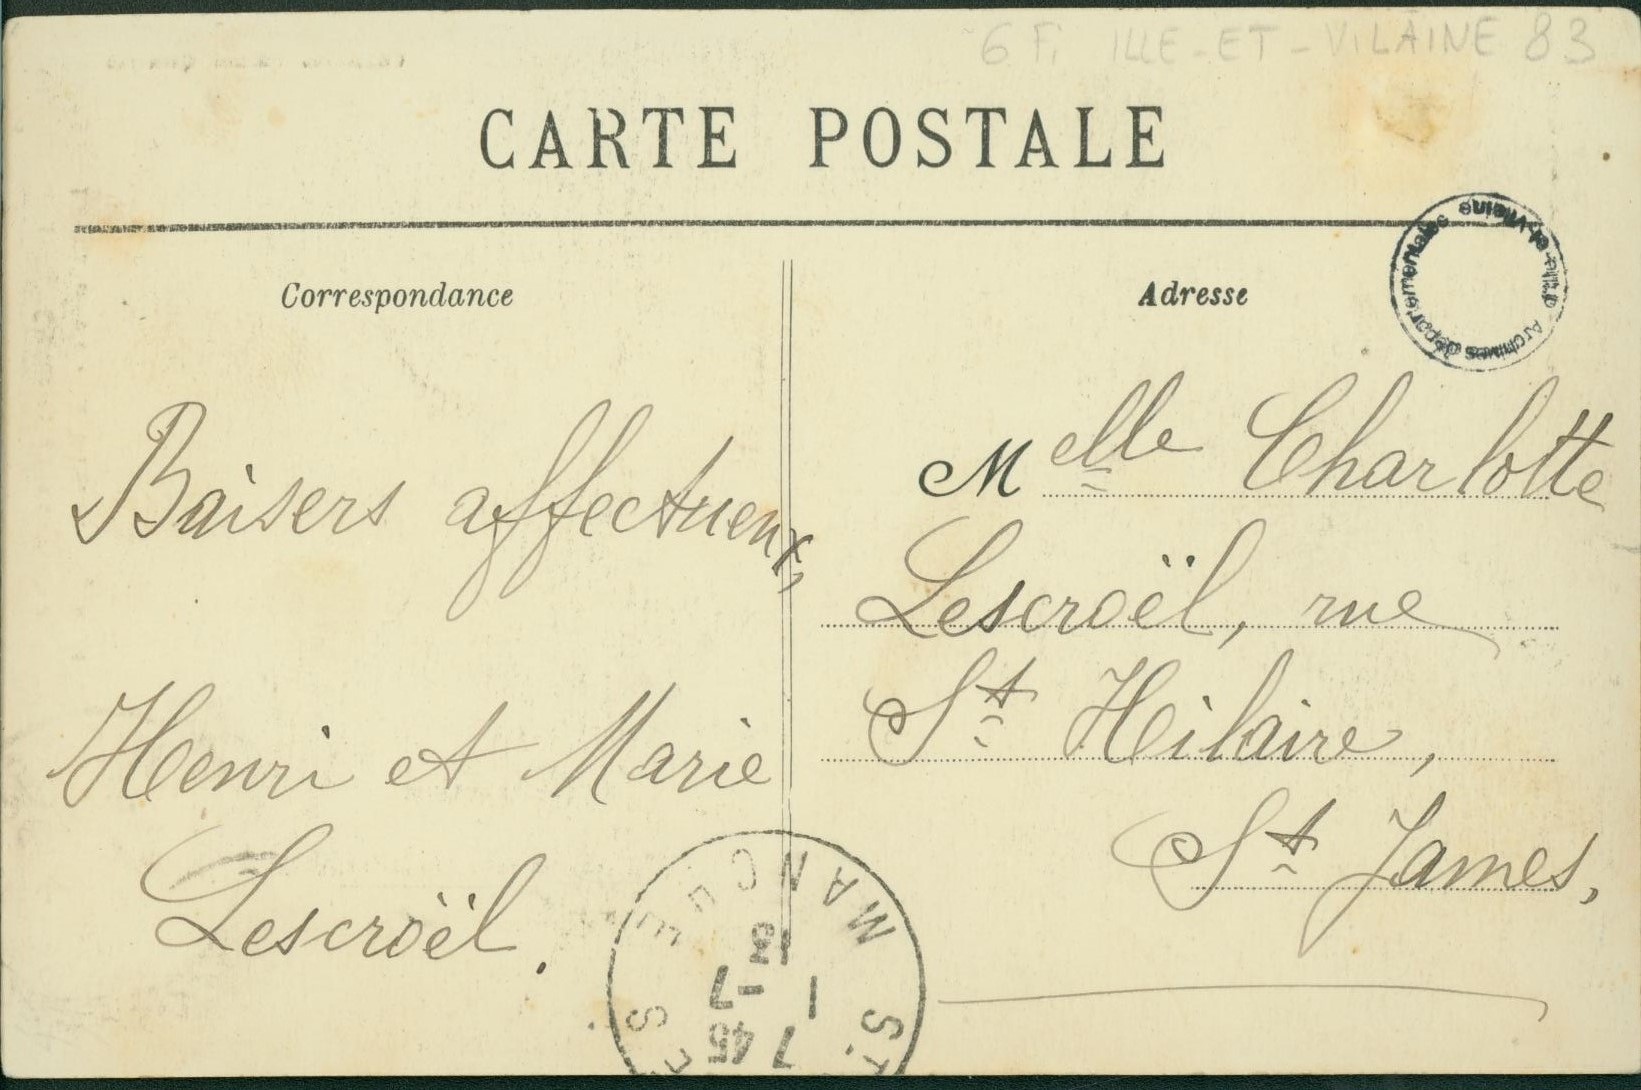 6 Fi ILLE-ET-VILAINE 83
CARTE POSTALE
Correspondance
Adresse
Archives départementales
d'Ille-et-Vilaine
Baisers affectueux,
Henri et Marie
Lescroël.
Melle Charlotte
Lescroël, rue
St Hilaire,
St James,
MANCHE
7 45
1 -7
13